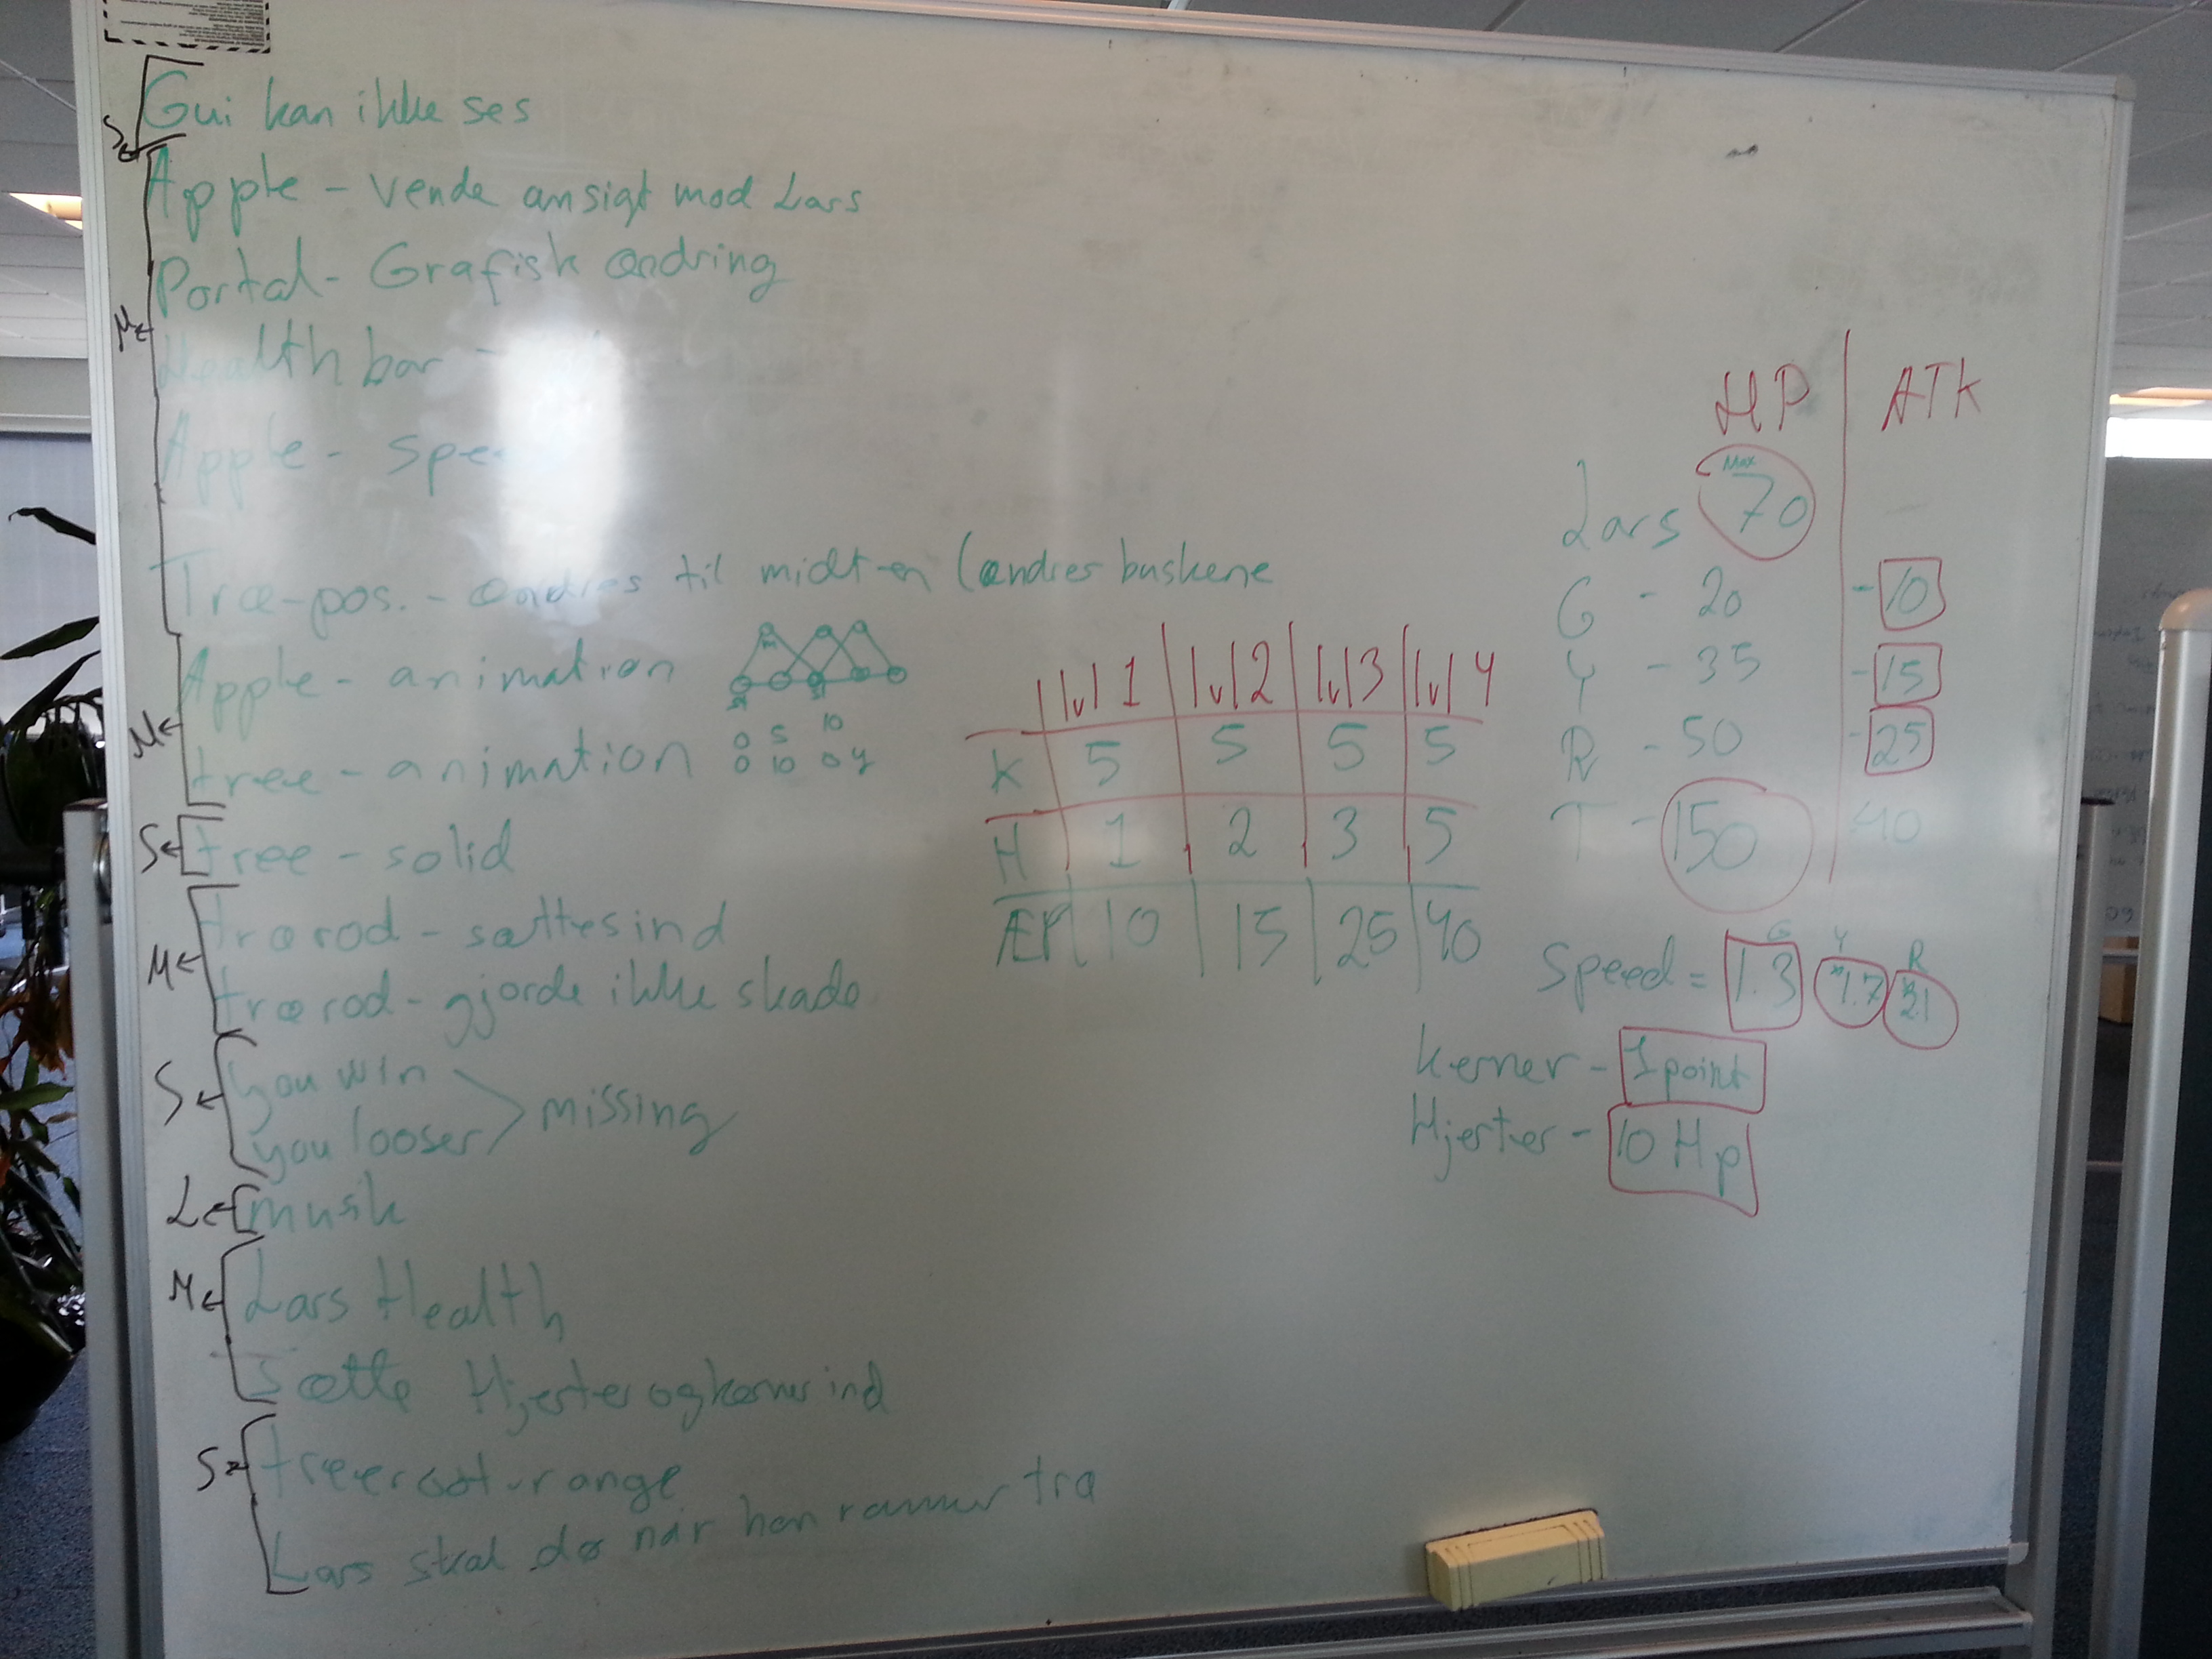 Gui kan ikke ses
S
Apple - vende ansigt mod Lars
Portal - Grafisk ændring
M
Health bar -
Apple -
Træ-pos. - ændres til midten (ændres buskene
Apple - animation
M
tree - animation
0 5 10
0 10 0 y
S tree - solid
trærod - sættes ind
M
trærod - gjorde ikke skade
S
you win
you looser
missing
L musik
M Lars Health
Sætte Hjerter og kerner ind
S treeroot-range
Lars skal dø når han rammer træ
lvl 1 lvl 2 lvl 3 lvl 4
K 5 5 5 5
H 1 2 3 5
10 15 25 40
HP ATK
Lars Max 70
G - 20 - 10
Y - 35 - 15
R - 50 - 25
T - 150 40
G Y R
Speed = 1.3 1.7 2.1
kerner - 1 point
Hjerter - 10 Hp